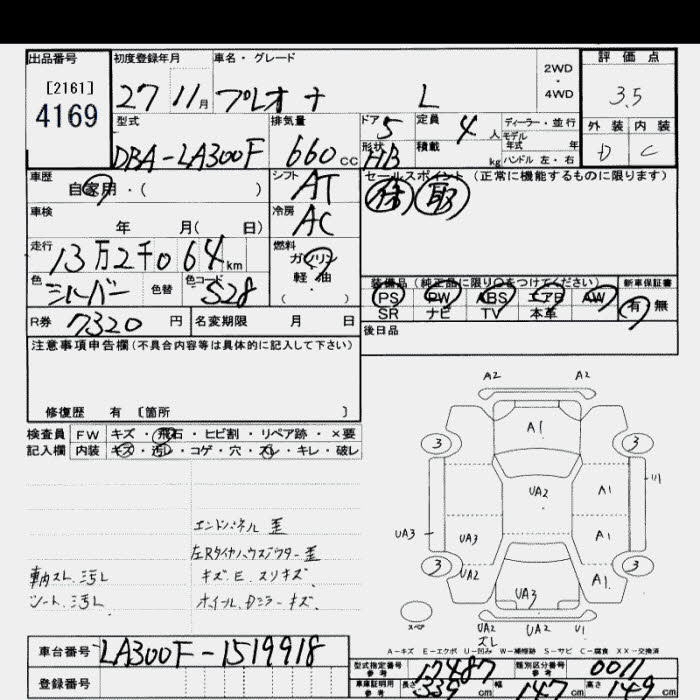 出品番号 初度登録年月 車名・グレード 評価点
[2161]
4169
27 11月 プレオ ナ L 2WD ・ 4WD 3.5
型式 排気量 ドア 定員 ディーラー・並行 外装 内装
DBA-LA300F 660cc 5 4人 モデル年式 年 D C
形状 HB 積載 kg ハンドル 左・右
車歴 自家用・( ) シフト AT セールスポイント (正常に機能するものに限ります)
車検 年 月( 日) 冷房 AC 取
走行 13万2千064km 燃料 ガソリン
軽油
( )
色 シルバー 色替 色コード S28 装備品(純正品に限り○をつけてください) 新車保証書
PS PW ABS エアB AW 有 無
SR ナビ TV 本革
R券 7320円 名変期限 月 日 後日品
注意事項申告欄(不具合内容等は具体的に記入して下さい)
修復歴 有 [箇所 ]
検査員 FW キズ・飛石・ヒビ割・リペア跡・×要
記入欄 内装 キズ・汚レ・コゲ・穴・スレ・キレ・破レ
エンドパネル 歪
左Rタイヤハウス 歪
車内スレ.汚レ キズ.E.スリキズ.
シート.汚レ ホイール.Dミラーキズ.
A2 A2
3 A1 3
UA2 A1 リ
UA3 UA3 A1
3 UA2 A1 3
UA3
スペア UA2 UA2 U1
ズレ
A-キズ E-エクボ U-凹み W-補修跡 S-サビ C-腐食 XX-交換済
車台番号 LA300F-1519918
登録番号
型式指定番号 参考 17487 類別区分番号 参考 0011
車庫証明用 参考 長さ 339cm 幅 147cm 高さ 149cm